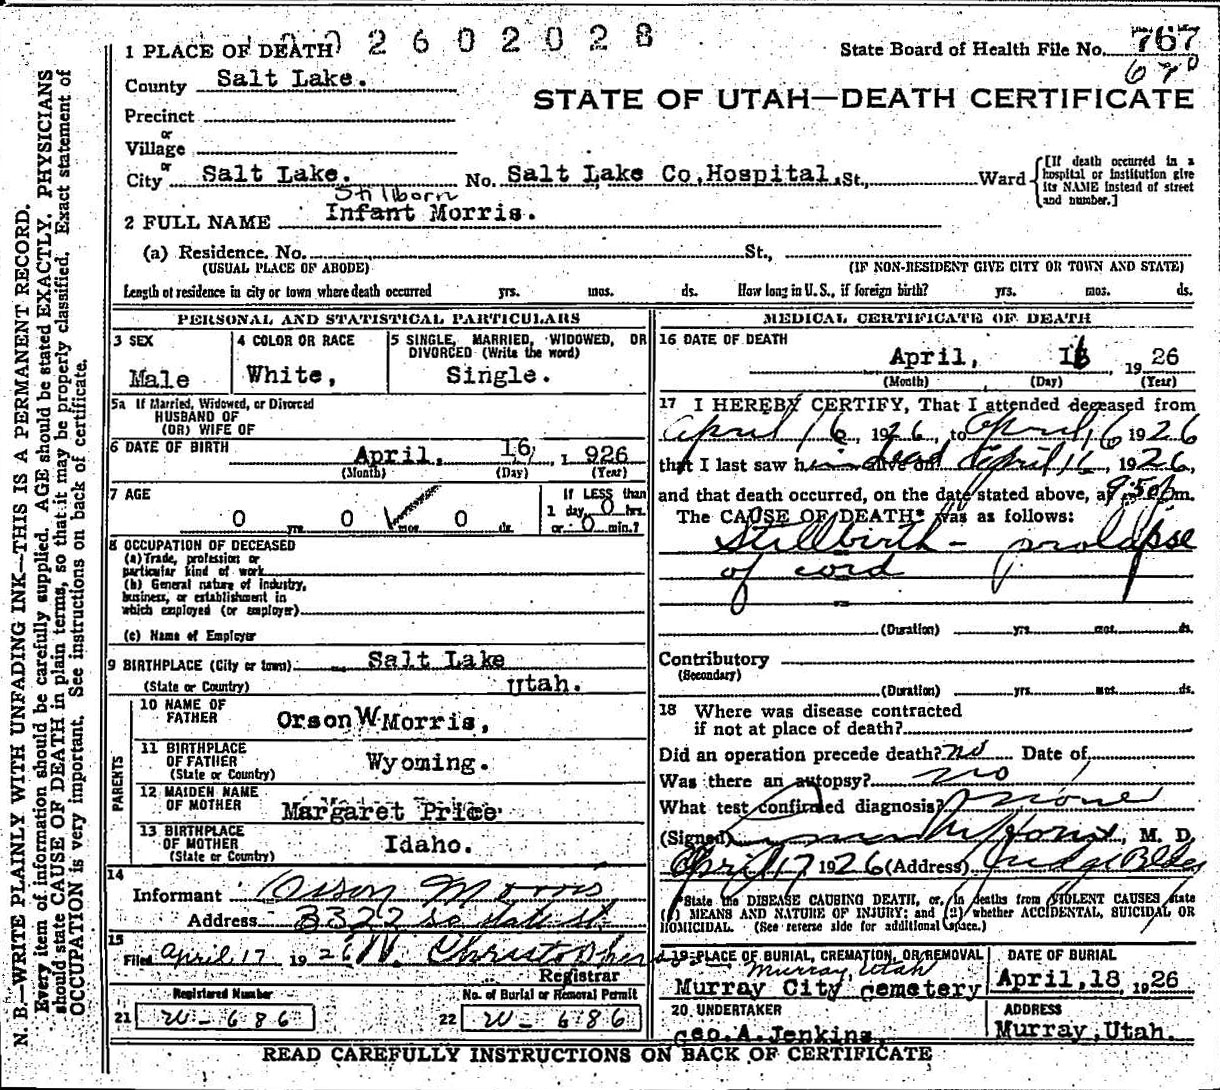 002602028
1 PLACE OF DEATH
State Board of Health File No. 767
County Salt Lake.
STATE OF UTAH—DEATH CERTIFICATE
Precinct
or
Village
or
City Salt Lake. No. Salt Lake Co, Hospital. St., Ward [If death occurred in a hospital or institution give its NAME instead of street and number.]
Stillborn
2 FULL NAME Infant Morris.
(a) Residence. No. St.,
(USUAL PLACE OF ABODE) (IF NON-RESIDENT GIVE CITY OR TOWN AND STATE)
Length of residence in city or town where death occurred yrs. mos. ds. How long in U. S., if foreign birth? yrs. mos. ds.
PERSONAL AND STATISTICAL PARTICULARS
3 SEX
Male
4 COLOR OR RACE
White,
5 SINGLE, MARRIED, WIDOWED, OR
DIVORCED (Write the word)
Single.
5a If Married, Widowed, or Divorced
HUSBAND OF
(OR) WIFE OF
6 DATE OF BIRTH April, 16, 1926
(Month) (Day) (Year)
7 AGE
0 yrs. 0 mos. 0 ds.
If LESS than
1 day, 0 hrs.
or 0 min.?
8 OCCUPATION OF DECEASED
(a) Trade, profession or
particular kind of work
(b) General nature of industry,
business, or establishment in
which employed (or employer)
(c) Name of Employer
9 BIRTHPLACE (City or town) Salt Lake
(State or Country) Utah.
PARENTS
10 NAME OF
FATHER Orson W Morris,
11 BIRTHPLACE
OF FATHER Wyoming.
(State or Country)
12 MAIDEN NAME
OF MOTHER Margaret Price
13 BIRTHPLACE
OF MOTHER Idaho.
(State or Country)
14
Informant Orson Morris
Address 3322 So State St.
15
Filed April 17 1926
Registrar
Registered Number
21 W-686
No. of Burial or Removal Permit
22 W-686
MEDICAL CERTIFICATE OF DEATH
16 DATE OF DEATH
April, 16, 1926
(Month) (Day) (Year)
17 I HEREBY CERTIFY, That I attended deceased from
April 16, 1926, to April 16 1926
that I last saw him dead alive on April 16, 1926,
and that death occurred, on the date stated above, at 9:50 p.m.
The CAUSE OF DEATH* was as follows:
Stillbirth - prolapse
of cord
(Duration) yrs. mos. ds.
Contributory
(Secondary)
(Duration) yrs. mos. ds.
18 Where was disease contracted
if not at place of death?
Did an operation precede death? no Date of
Was there an autopsy? no
What test confirmed diagnosis? none
(Signed) , M. D.
April 17 1926 (Address) Judge Bldg
*State the DISEASE CAUSING DEATH, or, in deaths from VIOLENT CAUSES state
(1) MEANS AND NATURE OF INJURY; and (2) whether ACCIDENTAL, SUICIDAL OR
HOMICIDAL. (See reverse side for additional space.)
19 PLACE OF BURIAL, CREMATION, OR REMOVAL
Murray, Utah
Murray City Cemetery
DATE OF BURIAL
April, 18, 1926
20 UNDERTAKER
Geo. A. Jenkins,
ADDRESS
Murray, Utah.
READ CAREFULLY INSTRUCTIONS ON BACK OF CERTIFICATE
N. B.—WRITE PLAINLY WITH UNFADING INK—THIS IS A PERMANENT RECORD.
Every item of information should be carefully supplied. AGE should be stated EXACTLY. PHYSICIANS
should state CAUSE OF DEATH in plain terms, so that it may be properly classified. Exact statement of
OCCUPATION is very important. See instructions on back of certificate.